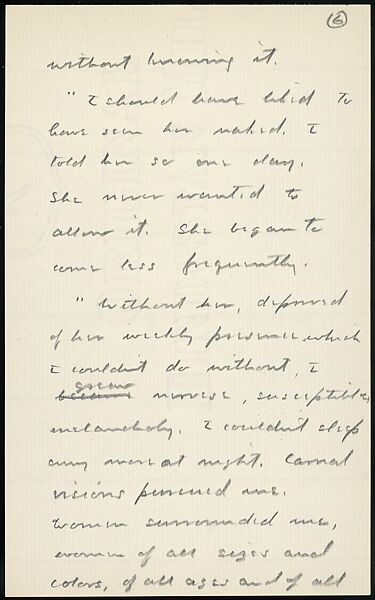 6
without knowing it.
" I should have liked to
have seen her naked. I
told her so one day.
She never wanted to
allow it. She began to
come less frequently.
" Without her, deprived
of her weekly presence which
I couldn't do without, I
became grew morose, susceptible,
melancholy. I couldn't sleep
any more at night. Carnal
visions pursued me.
Women surrounded me,
women of all sizes and
colors, of all ages and of all